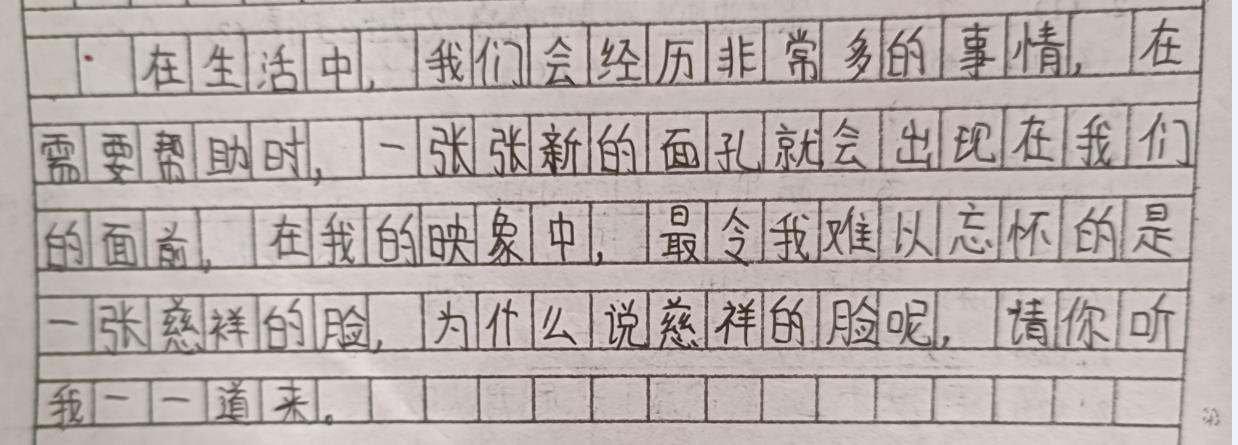 在生活中，我们会经历非常多的事情，在
需要帮助时，一张张新的面孔就会出现在我们
的面前，在我的映象中，最令我难以忘怀的是
一张慈祥的脸，为什么说慈祥的脸呢，请你听
我一一道来。